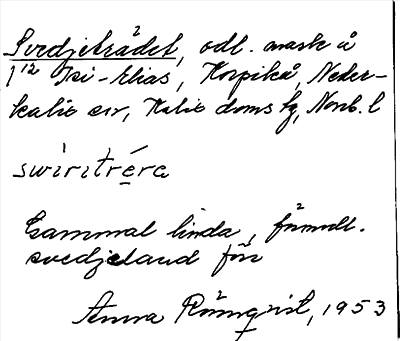 Svedjeträdet, odl. mark å
1/12 Isi-Elias, Korpikå, Neder-
kalix sn, Kalix doms hg, Norrb. l
swiritréra
Gammal linda, förmodl.
svedjeland förr
Anna Rönnqvist, 1953